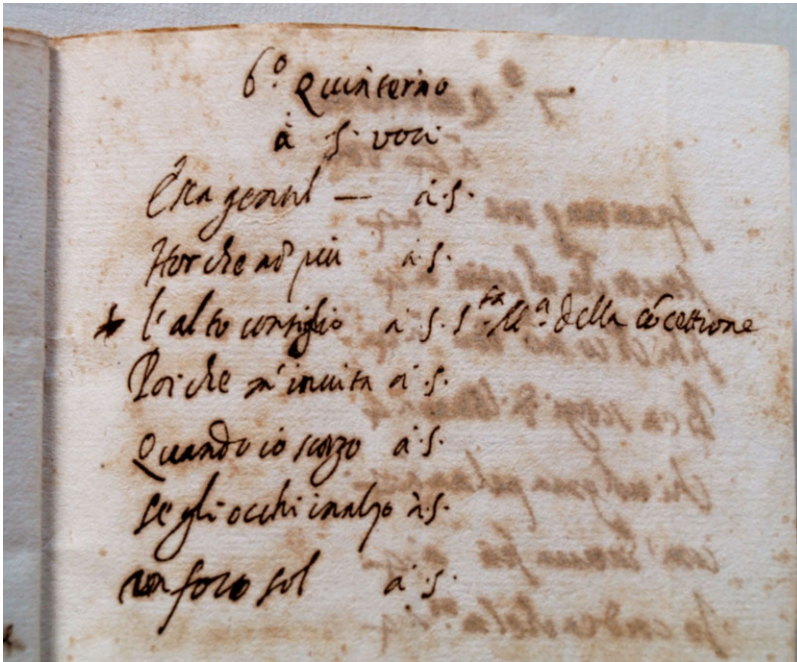 6.º Quinterno
à 5. voci
Era gentil — à .5.
Hor che nõ più à .5.
l'alto consiglio à .5. S.ta M.a della cõcettione
Poi che m'inuita à .5.
Quando io scorgo à .5.
Se gli occhi inalzo à .5.
un foco sol à .5.